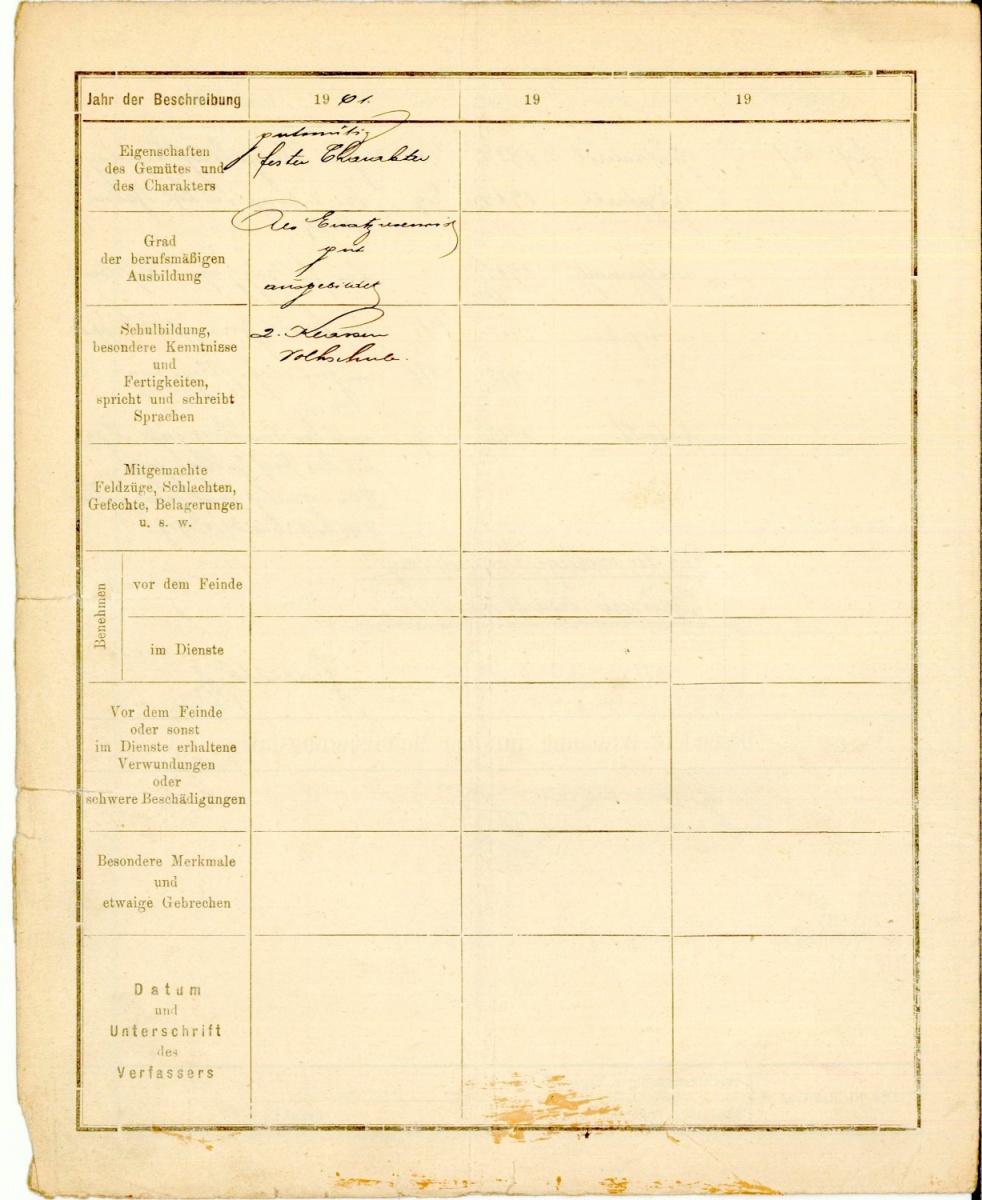 Jahr der Beschreibung 19 01. 19 19
Eigenschaften
des Gemütes und
des Charakters
gutmütig
fester Charakter
Grad
der berufsmäßigen
Ausbildung
Als Ersatzreservist
gut
ausgebildet
Schulbildung,
besondere Kenntnisse
und
Fertigkeiten,
spricht und schreibt
Sprachen
2. Klassen
Volkschule.
Mitgemachte
Feldzüge, Schlachten,
Gefechte, Belagerungen
u. s. w.
Benehmen
vor dem Feinde
im Dienste
Vor dem Feinde
oder sonst
im Dienste erhaltene
Verwundungen
oder
schwere Beschädigungen
Besondere Merkmale
und
etwaige Gebrechen
Datum
und
Unterschrift
des
Verfassers